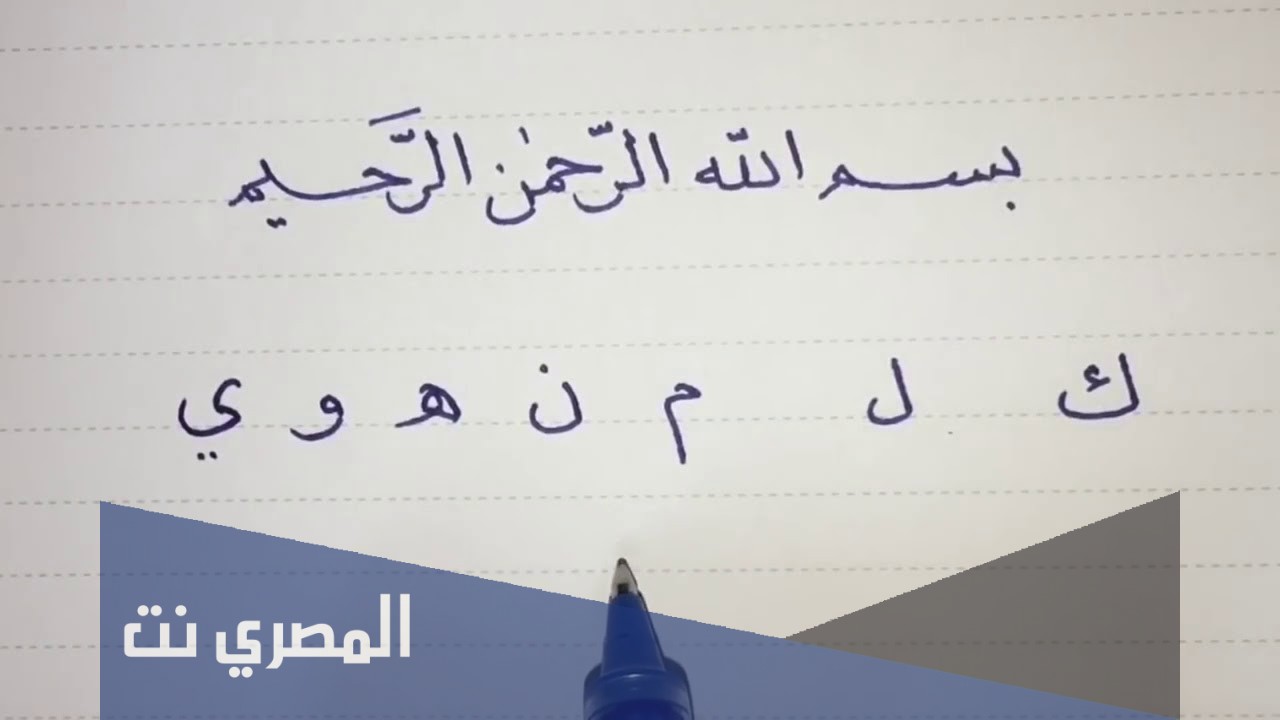 بسم الله الرّحمٰن الرَّحيم
ك ل م ن هـ و ي
المصري نت